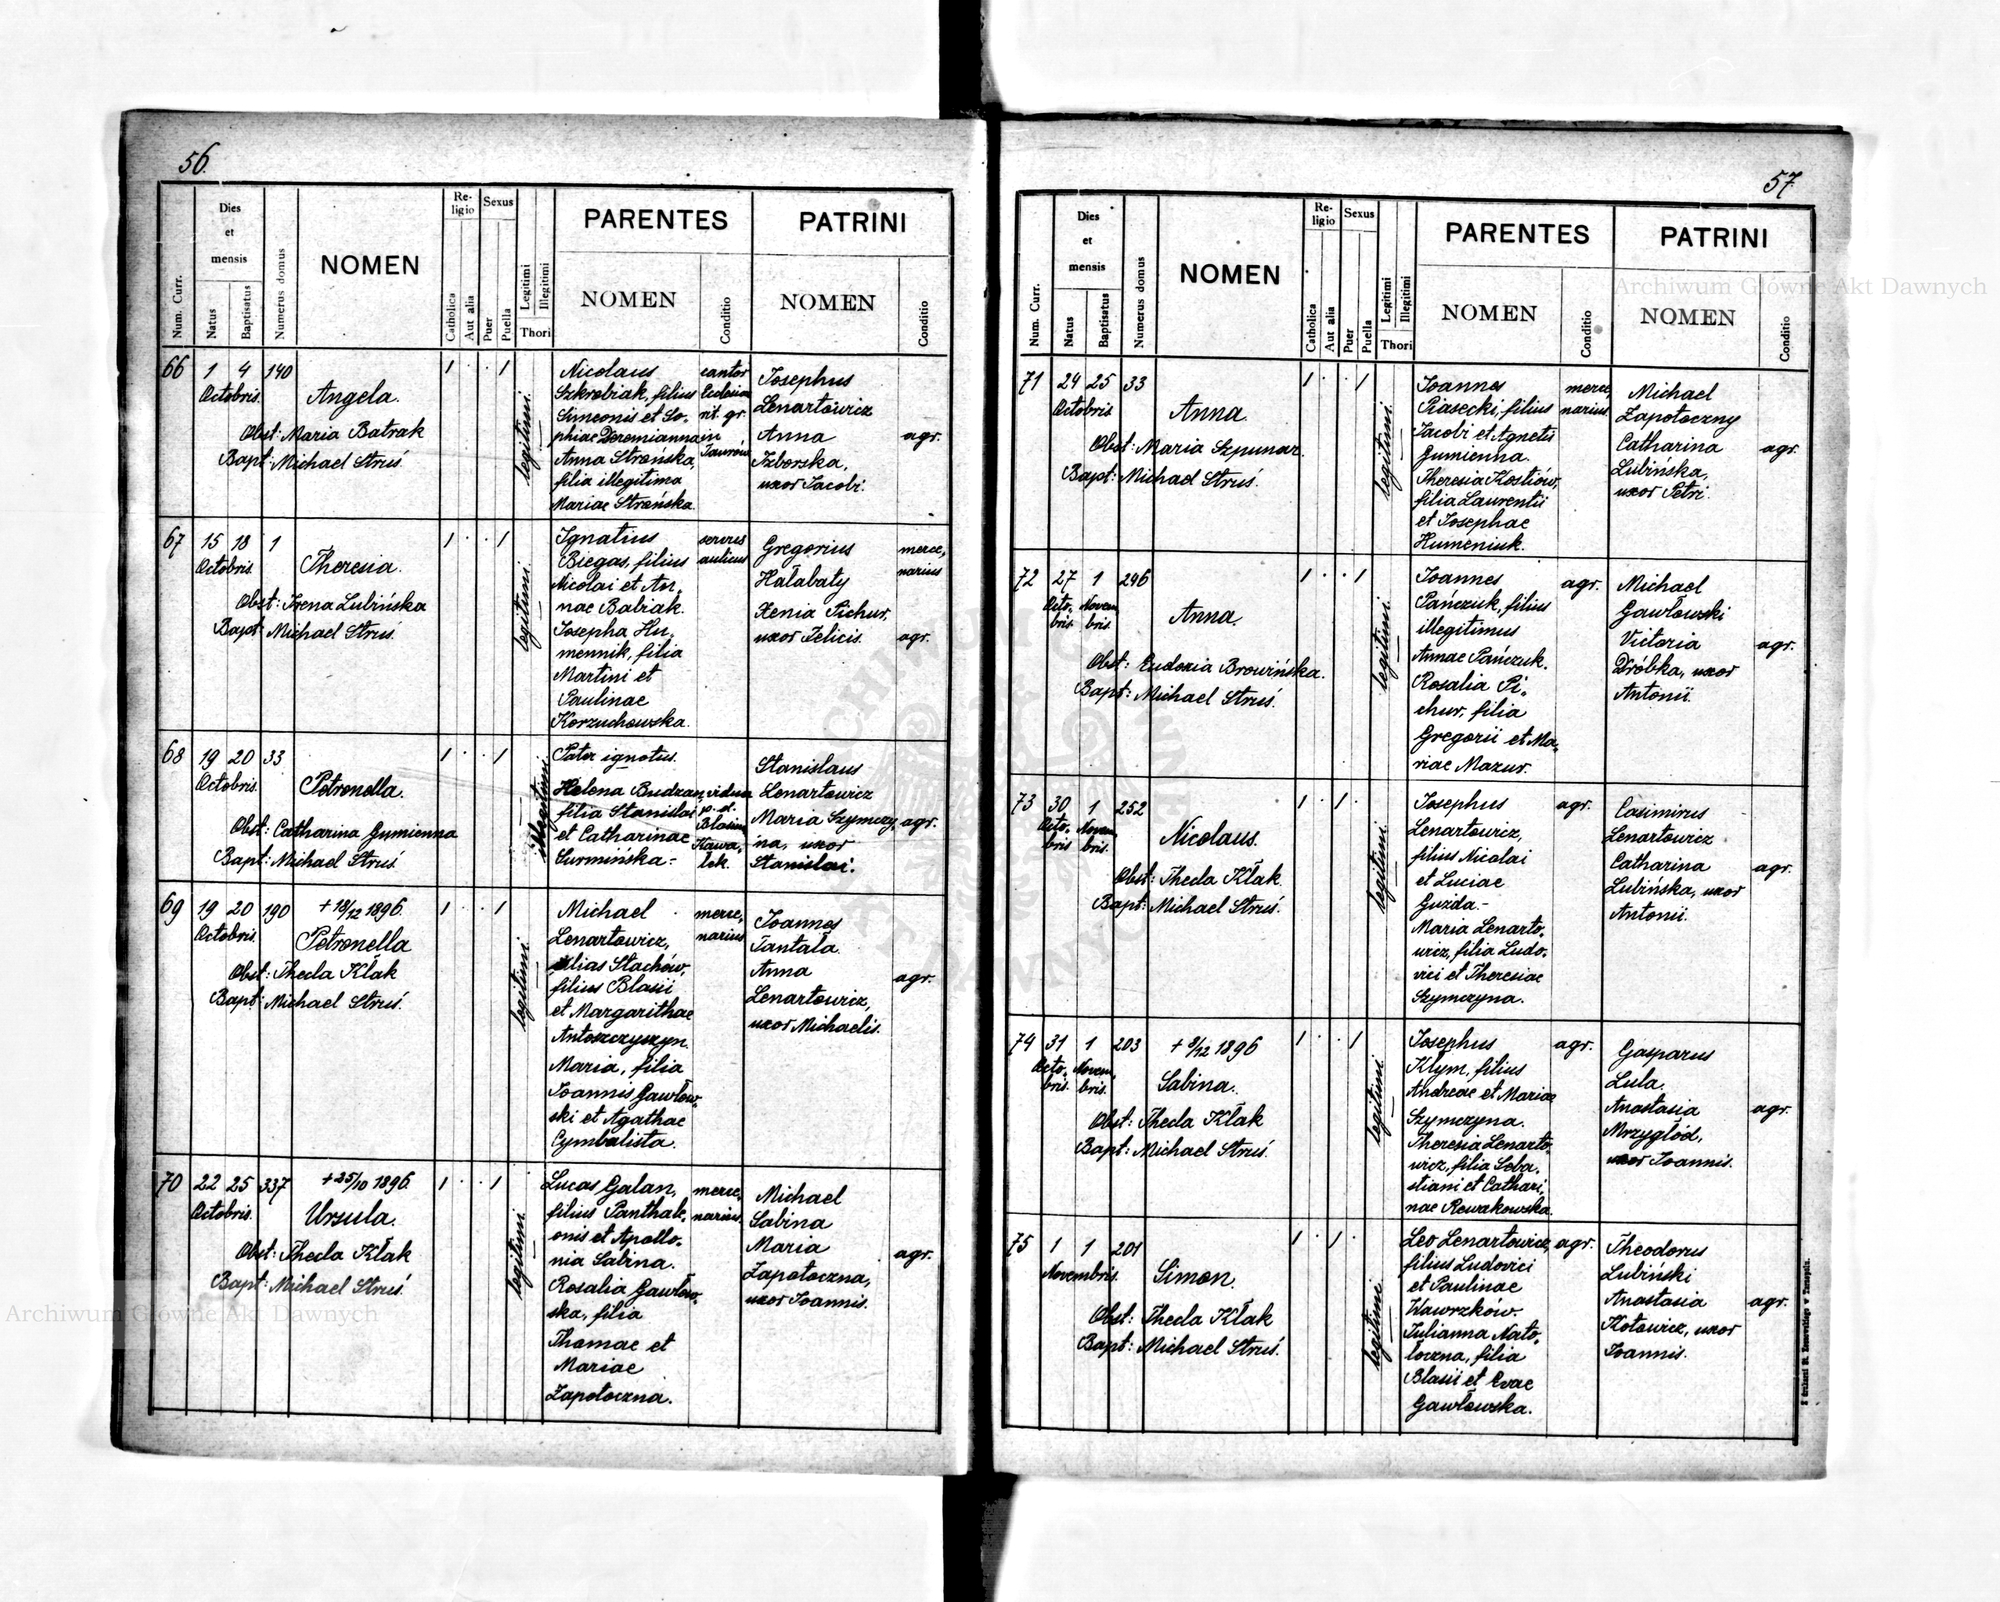 56.
Num. Curr.
Dies et mensis
Natus
Baptisatus
Numerus domus
NOMEN
Religio
Catholica
Aut alia
Sexus
Puer
Puella
Legitimi
Illegitimi
Thori
PARENTES
NOMEN
Conditio
PATRINI
NOMEN
Conditio
66
1 4 140
Octobris.
Angela.
Obst: Maria Batrak
Bapt: Michael Struś
legitimi.
Nicolaus
Szkrobiak, filius
Simeonis et So-
phiae Deremianna
Anna Strońska,
filia illegitima
Mariae Strońska.
cantor
rit. gr.
in
Josephus
Lenartowicz
Anna
Izborska,
uxor Jacobi.
agr.
67
15 18 1
Octobris.
Theresia.
Obst: Irena Lubińska
Bapt: Michael Struś.
legitimi.
Ignatius
Biegas, filius
Nicolai et An-
nae Babiak.
Josepha Hu-
mennik, filia
Martini et
Paulinae
Korzuchowska.
servus
aulicus
Gregorius
Hałabaty
Xenia Pichur,
uxor Felicis.
merce-
narius
agr.
68
19 20 33
Octobris.
Petronella.
Obst: Catharina Gumienna
Bapt: Michael Struś
illegitimi.
Pater ignotus.
Helena Budzan,
filia Stanislai
et Catharinae
Surmińska-
vidua
p. d.
Blasium
Kawa-
lek.
Stanislaus
Lenartowicz
Maria Szymczy-
na, uxor
Stanislai.
agr.
69
19 20 190
Octobris.
+ 18/12 1896.
Petronella
Obst: Thecla Kłak
Bapt: Michael Struś.
legitimi.
Michael
Lenartowicz,
alias Stachów,
filius Blasii
et Margarithae
Antoszczyszyn.
Maria, filia
Joannis Gawłow-
ski et Agathae
Cymbalista.
merce-
narius
Joannes
Tantała.
Anna
Lenartowicz,
uxor Michaelis.
agr.
70
22 25 337
Octobris.
+ 25/10 1896.
Ursula.
Obst: Thecla Kłak
Bapt: Michael Struś.
legitimi.
Lucas Galan,
filius Panthale-
onis et Apollo-
nia Sabina.
Rosalia Gawłow-
ska, filia
Thomae et
Mariae
Zapotoczna.
merce-
narius.
Michael
Sabina
Maria
Zapotoczna,
uxor Joannis.
agr.
57
Num. Curr.
Dies et mensis
Natus
Baptisatus
Numerus domus
NOMEN
Religio
Catholica
Aut alia
Sexus
Puer
Puella
Legitimi
Illegitimi
Thori
PARENTES
NOMEN
Conditio
PATRINI
NOMEN
Conditio
71
24 25 33
Octobris
Anna.
Obst: Maria Szpunar.
Bapt: Michael Struś.
legitimi.
Joannes
Piasecki, filius
Jacobi et Agnetis
Gumienna.
Theresia Kostiów,
filia Laurentii
et Josephae
Humeniuk.
merce-
narius.
Michael
Zapotoczny
Catharina
Lubińska,
uxor Petri.
agr.
72
27 1 296
Octo-
bris.
Novem-
bris
Anna.
Obst: Eudoxia Browińska.
Bapt: Michael Struś.
legitimi.
Joannes
Pańczuk, filius
illegitimus
Annae Pańczuk.
Rosalia Pi-
chur, filia
Gregorii et Ma-
riae Mazur.
agr.
Michael
Gawłowski
Victoria
Dróbka, uxor
Antonii.
agr.
73
30 1 252
Octo-
bris
Novem-
bris.
Nicolaus.
Obst: Thecla Kłak
Bapt: Michael Struś.
legitimi.
Josephus
Lenartowicz,
filius Nicolai
et Luciae
Guzda.-
Maria Lenarto-
wicz, filia Ludo-
vici et Theresiae
Szymczyna.
agr.
Casimirus
Lenartowicz
Catharina
Lubińska, uxor
Antonii.
agr.
74
31 1 203
Octo-
bris.
Novem-
bris.
+ 8/12 1896
Sabina.
Obst: Thecla Kłak
Bapt: Michael Struś.
legitimi.
Josephus
Kłym, filius
Andreae et Mariae
Szymczyna.
Theresia Lenarto-
wicz, filia Seba-
stiani et Cathari-
nae Rewakowska.
agr.
Gasparus
Lula.
Anastasia
Mrzygłód,
uxor Joannis.
agr.
75
1 1 201
Novembris.
Simon.
Obst: Thecla Kłak
Bapt: Michael Struś.
legitimi.
Leo Lenartowicz,
filius Ludovici
et Paulinae
Wawrzków.
Julianna Nato-
loczna, filia
Blasii et Evae
Gawłowska.
agr.
Theodorus
Lubiński
Anastasia
Kotowicz, uxor
Joannis.
agr.
Archiwum Główne Akt Dawnych
Archiwum Główne Akt Dawnych